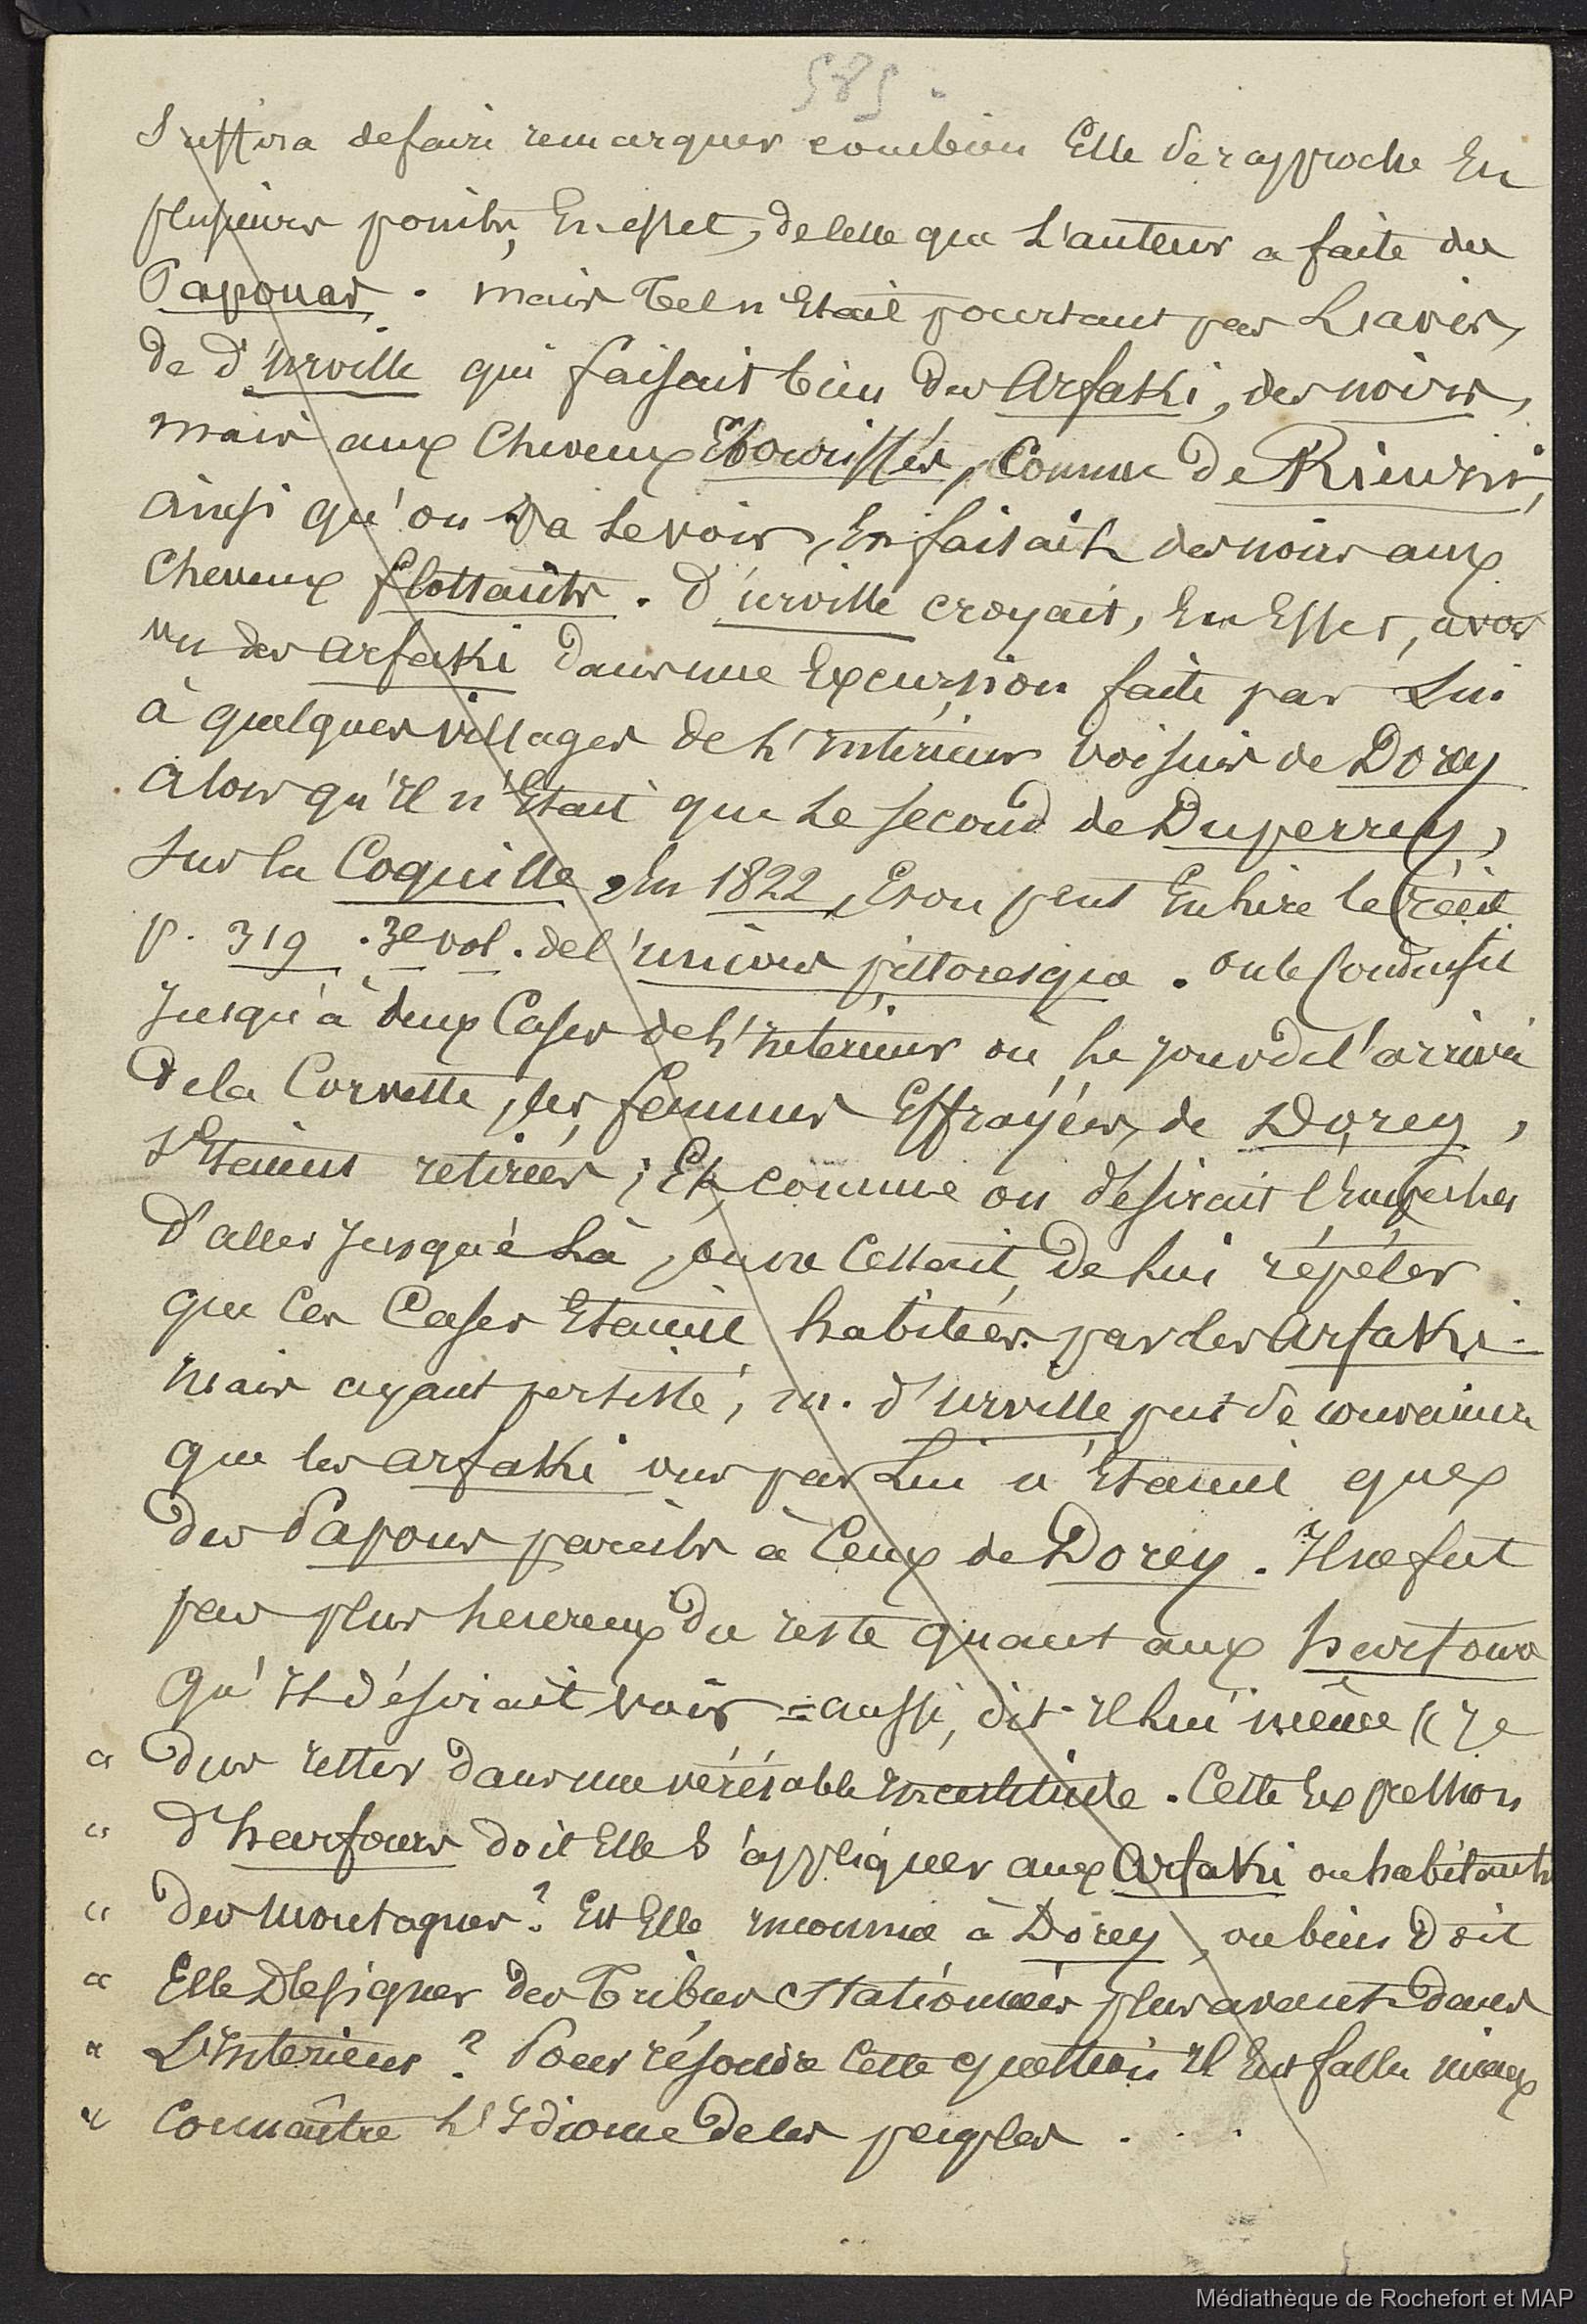 585 -
Suffira de faire remarquer combien Elle se rapproche En
plusieurs points, En effet, de celle que L'auteur a faite des
Papouas. mais tel n'Etait pourtant pas L'avis,
de d'urville qui faisait bien des Arfaki, des noirs,
mais aux Cheveux Ebouriffés, Comme de Rienzi,
ainsi qu'on va Le voir, En faisait des noirs aux
Cheveux flottants. D'urville croyait, En Effet, avoir
vu des arfaki dans une Excursion faite par Lui
à quelques villages de L'Intérieur voisins de Dorey
alors qu'Il n'Etait que Le second de Duperrey,
sur la Coquille En 1822, Et on peut En Lire le récit
p. 319 . 3e vol. de l'univers pittoresque. on le Conduisit
Jusqu'à deux Cases de L'Intérieur où Le jour de l'arrivée
de la Corvette, les femmes Effrayées, de Dorey,
s'Etaient retirées ; Et comme on désirait l'Empêcher
d'aller Jusque Là, on ne Cessait, de Lui répéter
que Ces Cases Etaient habitées par des Arfakis.
Mais ayant persisté, m. d'urville put se convaincre
que les arfaki vus par Lui n'Etaient que
des Papous pareils à Ceux de Dorey. Il ne fut
pas plus heureux du reste quant aux harfours
qu'Il désirait voir = aussi, dit-Il Lui même « Je
« dus rester dans une véritable Incertitude. Cette Expression
« d'harfours doit Elle s'appliquer aux Arfaki ou habitants
« des montagnes ? Est Elle inconnue à Dorey, ou bien doit
« Elle Désigner des Tribus stationnées plus avant dans
« L'Interieur ? Pour résoudre Cette question Il Eut fallu mieux
« Connaître L'Idiome de Ces peuples . . .
Médiathèque de Rochefort et MAP